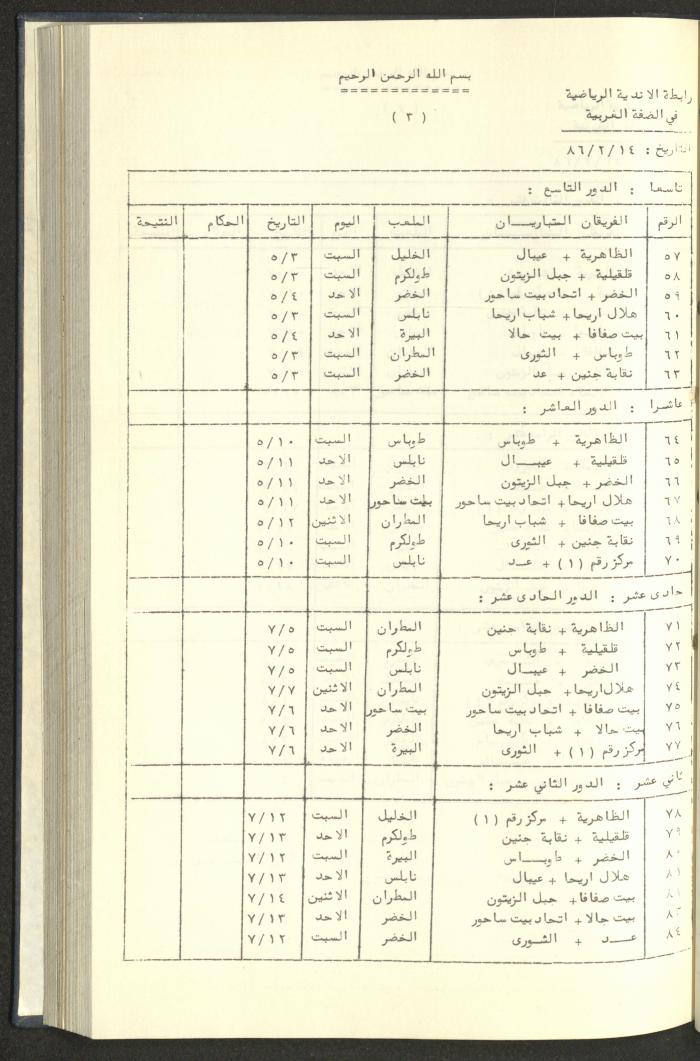 بسم الله الرحمن الرحيم
=============
رابطة الاندية الرياضية
في الضفة الغربية
( ٣ )
التاريخ : ٨٦/٢/١٤
تاسعا : الدور التاسع :
الرقم الفريقان المتباريـــان الملعب اليوم التاريخ الحكام النتيجة
٥٧ الظاهرية + عيبال الخليل السبت ٥/٣
٥٨ قلقيلية + جبل الزيتون طولكرم السبت ٥/٣
٥٩ الخضر + اتحاد بيت ساحور الخضر الاحد ٥/٤
٦٠ هلال اريحا + شباب اريحا نابلس السبت ٥/٣
٦١ بيت صفافا + بيت جالا البيرة الاحد ٥/٤
٦٢ طوباس + الثورى المطران السبت ٥/٣
٦٣ نقابة جنين + عد الخضر السبت ٥/٣
عاشرا : الدور العاشر :
٦٤ الظاهرية + طوباس طوباس السبت ٥/١٠
٦٥ قلقيلية + عيبـــال نابلس الاحد ٥/١١
٦٦ الخضر + جبل الزيتون الخضر الاحد ٥/١١
٦٧ هلال اريحا + اتحاد بيت ساحور بيت ساحور الاحد ٥/١١
٦٨ بيت صفافا + شباب اريحا المطران الاثنين ٥/١٢
٦٩ نقابة جنين + الثورى طولكرم السبت ٥/١٠
٧٠ مركز رقم (١) + عــد نابلس السبت ٥/١٠
حادى عشر : الدور الحادى عشر :
٧١ الظاهرية + نقابة جنين المطران السبت ٧/٥
٧٢ قلقيلية + طوباس طولكرم السبت ٧/٥
٧٣ الخضر + عيبـــال نابلس السبت ٧/٥
٧٤ هلال اريحا + جبل الزيتون المطران الاثنين ٧/٧
٧٥ بيت صفافا + اتحاد بيت ساحور بيت ساحور الاحد ٧/٦
٧٦ بيت جالا + شباب اريحا الخضر الاحد ٧/٦
٧٧ مركز رقم (١) + الثورى البيرة الاحد ٧/٦
ثاني عشر : الدور الثاني عشر :
٧٨ الظاهرية + مركز رقم (١) الخليل السبت ٧/١٢
٧٩ قلقيلية + نقابة جنين طولكرم الاحد ٧/١٣
٨٠ الخضر + طوبـــاس البيرة السبت ٧/١٢
٨١ هلال اريحا + عيبال نابلس الاحد ٧/١٣
بيت صفافا + جبل الزيتون المطران الاثنين ٧/١٤
٨٣ بيت جالا + اتحاد بيت ساحور الخضر الاحد ٧/١٣
٨٤ عـــد + الثــورى الخضر السبت ٧/١٢